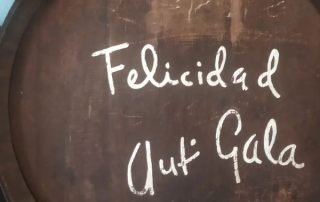 Felicidad
Auti Gala